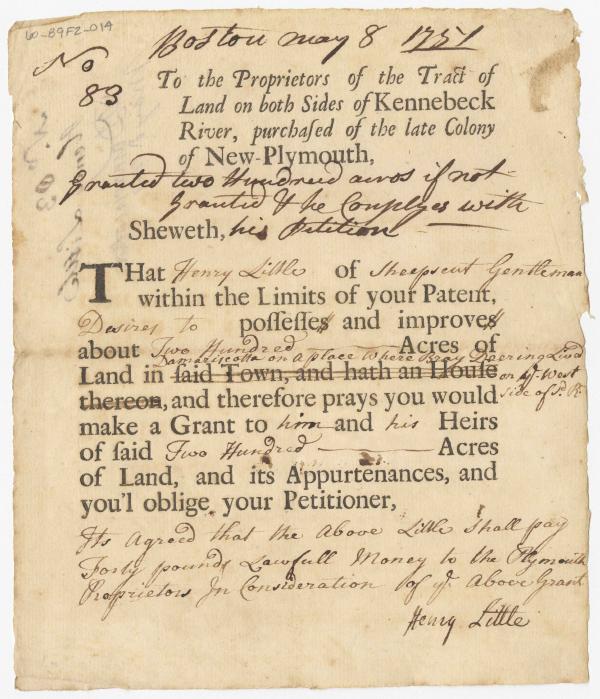 60-89F2-014
Boston may 8 1751
No
83
To the Proprietors of the Tract of
Land on both Sides of Kennebeck
River, purchaſed of the late Colony
of New-Plymouth,
Granted two Hundreid acros if not
Granted & he Complyes with
Sheweth, his Petition
THat Henry Little of Sheepscut Gentleman
within the Limits of your Patent,
Desires to poſſeſſes and improves
about Two Hundred Acres of
Damariscotta on a place where Bray Deering Liv'd
Land in ſaid Town, and hath an Houſe on ye West
thereon, and therefore prays you would side of sd. R
make a Grant to him and his Heirs
of ſaid Two Hundred Acres
of Land, and its Appurtenances, and
you'l oblige your Petitioner,
Its Agreed that the Above Little Shall pay
Forty pounds Lawfull Money to the Plymouth
Proprietors In Consideration of ye. Above Grant
Henry Little